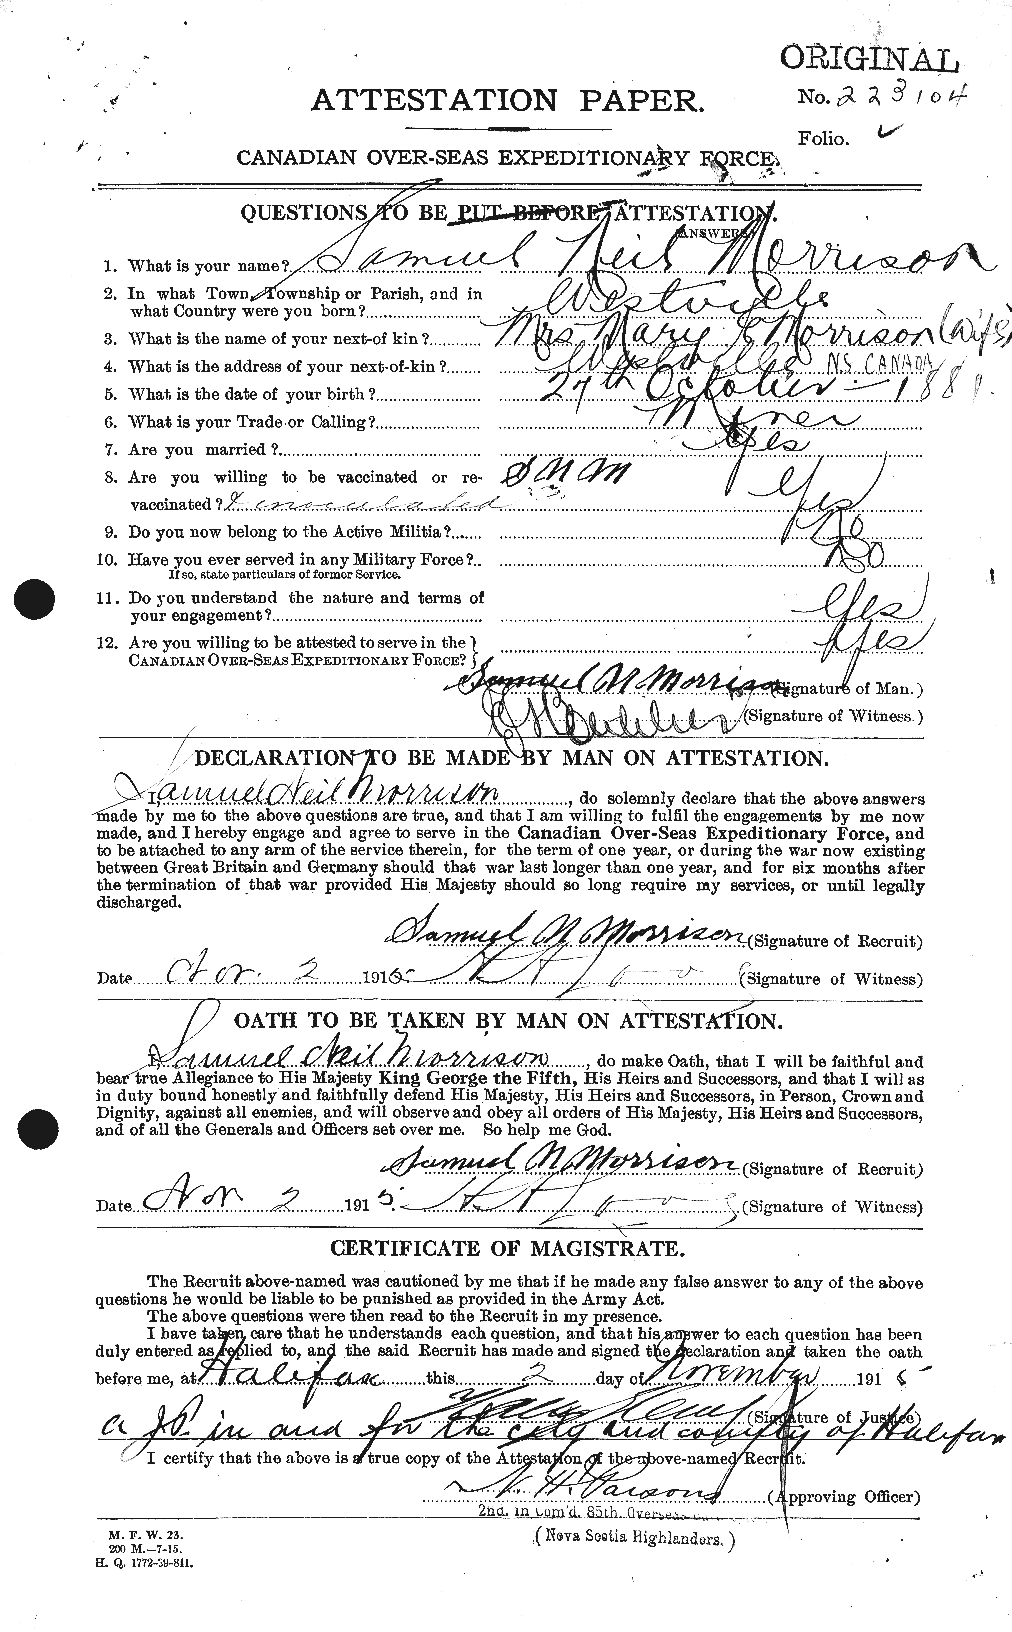 ORIGINAL
ATTESTATION PAPER.
No. 223104
Folio.
CANADIAN OVER-SEAS EXPEDITIONARY FORCE.
QUESTIONS TO BE PUT BEFORE ATTESTATION.
(ANSWERS)
1. What is your name? Samuel Neil Morrison
2. In what Town, Township or Parish, and in
what Country were you born? Westville
3. What is the name of your next-of kin? Mrs Mary E Morrison (wife)
4. What is the address of your next-of-kin? Westville N.S. CANADA
5. What is the date of your birth? 27th October 1881.
6. What is your Trade or Calling? Miner
7. Are you married? Yes
8. Are you willing to be vaccinated or re- SNM
vaccinated? & inoculated Yes
9. Do you now belong to the Active Militia? No
10. Have you ever served in any Military Force? No
If so, state particulars of former Service.
11. Do you understand the nature and terms of
your engagement? Yes
12. Are you willing to be attested to serve in the
CANADIAN OVER-SEAS EXPEDITIONARY FORCE? Yes
Samuel N Morrison (Signature of Man.)
(Signature of Witness.)
DECLARATION TO BE MADE BY MAN ON ATTESTATION.
I, Samuel Neil Morrison, do solemnly declare that the above answers
made by me to the above questions are true, and that I am willing to fulfil the engagements by me now
made, and I hereby engage and agree to serve in the Canadian Over-Seas Expeditionary Force, and
to be attached to any arm of the service therein, for the term of one year, or during the war now existing
between Great Britain and Germany should that war last longer than one year, and for six months after
the termination of that war provided His Majesty should so long require my services, or until legally
discharged.
Samuel N Morrison (Signature of Recruit)
Date Nov. 2 1915 (Signature of Witness)
OATH TO BE TAKEN BY MAN ON ATTESTATION.
I, Samuel Neil Morrison, do make Oath, that I will be faithful and
bear true Allegiance to His Majesty King George the Fifth, His Heirs and Successors, and that I will as
in duty bound honestly and faithfully defend His Majesty, His Heirs and Successors, in Person, Crown and
Dignity, against all enemies, and will observe and obey all orders of His Majesty, His Heirs and Successors,
and of all the Generals and Officers set over me. So help me God.
Samuel N Morrison (Signature of Recruit)
Date Nov 2 1915. (Signature of Witness)
CERTIFICATE OF MAGISTRATE.
The Recruit above-named was cautioned by me that if he made any false answer to any of the above
questions he would be liable to be punished as provided in the Army Act.
The above questions were then read to the Recruit in my presence.
I have taken care that he understands each question, and that his answer to each question has been
duly entered as replied to, and the said Recruit has made and signed the declaration and taken the oath
before me, at Halifax this 2 day of November 1915
(Signature of Justice)
a J.P. in and for the city and county of Halifax
I certify that the above is a true copy of the Attestation of the above-named Recruit.
N. H. Parsons (Approving Officer)
2nd. in Com'd. 85th. Overseas
(Nova Scotia Highlanders.)
M. F. W. 23.
200 M.—7-15.
H. Q. 1772-39-841.